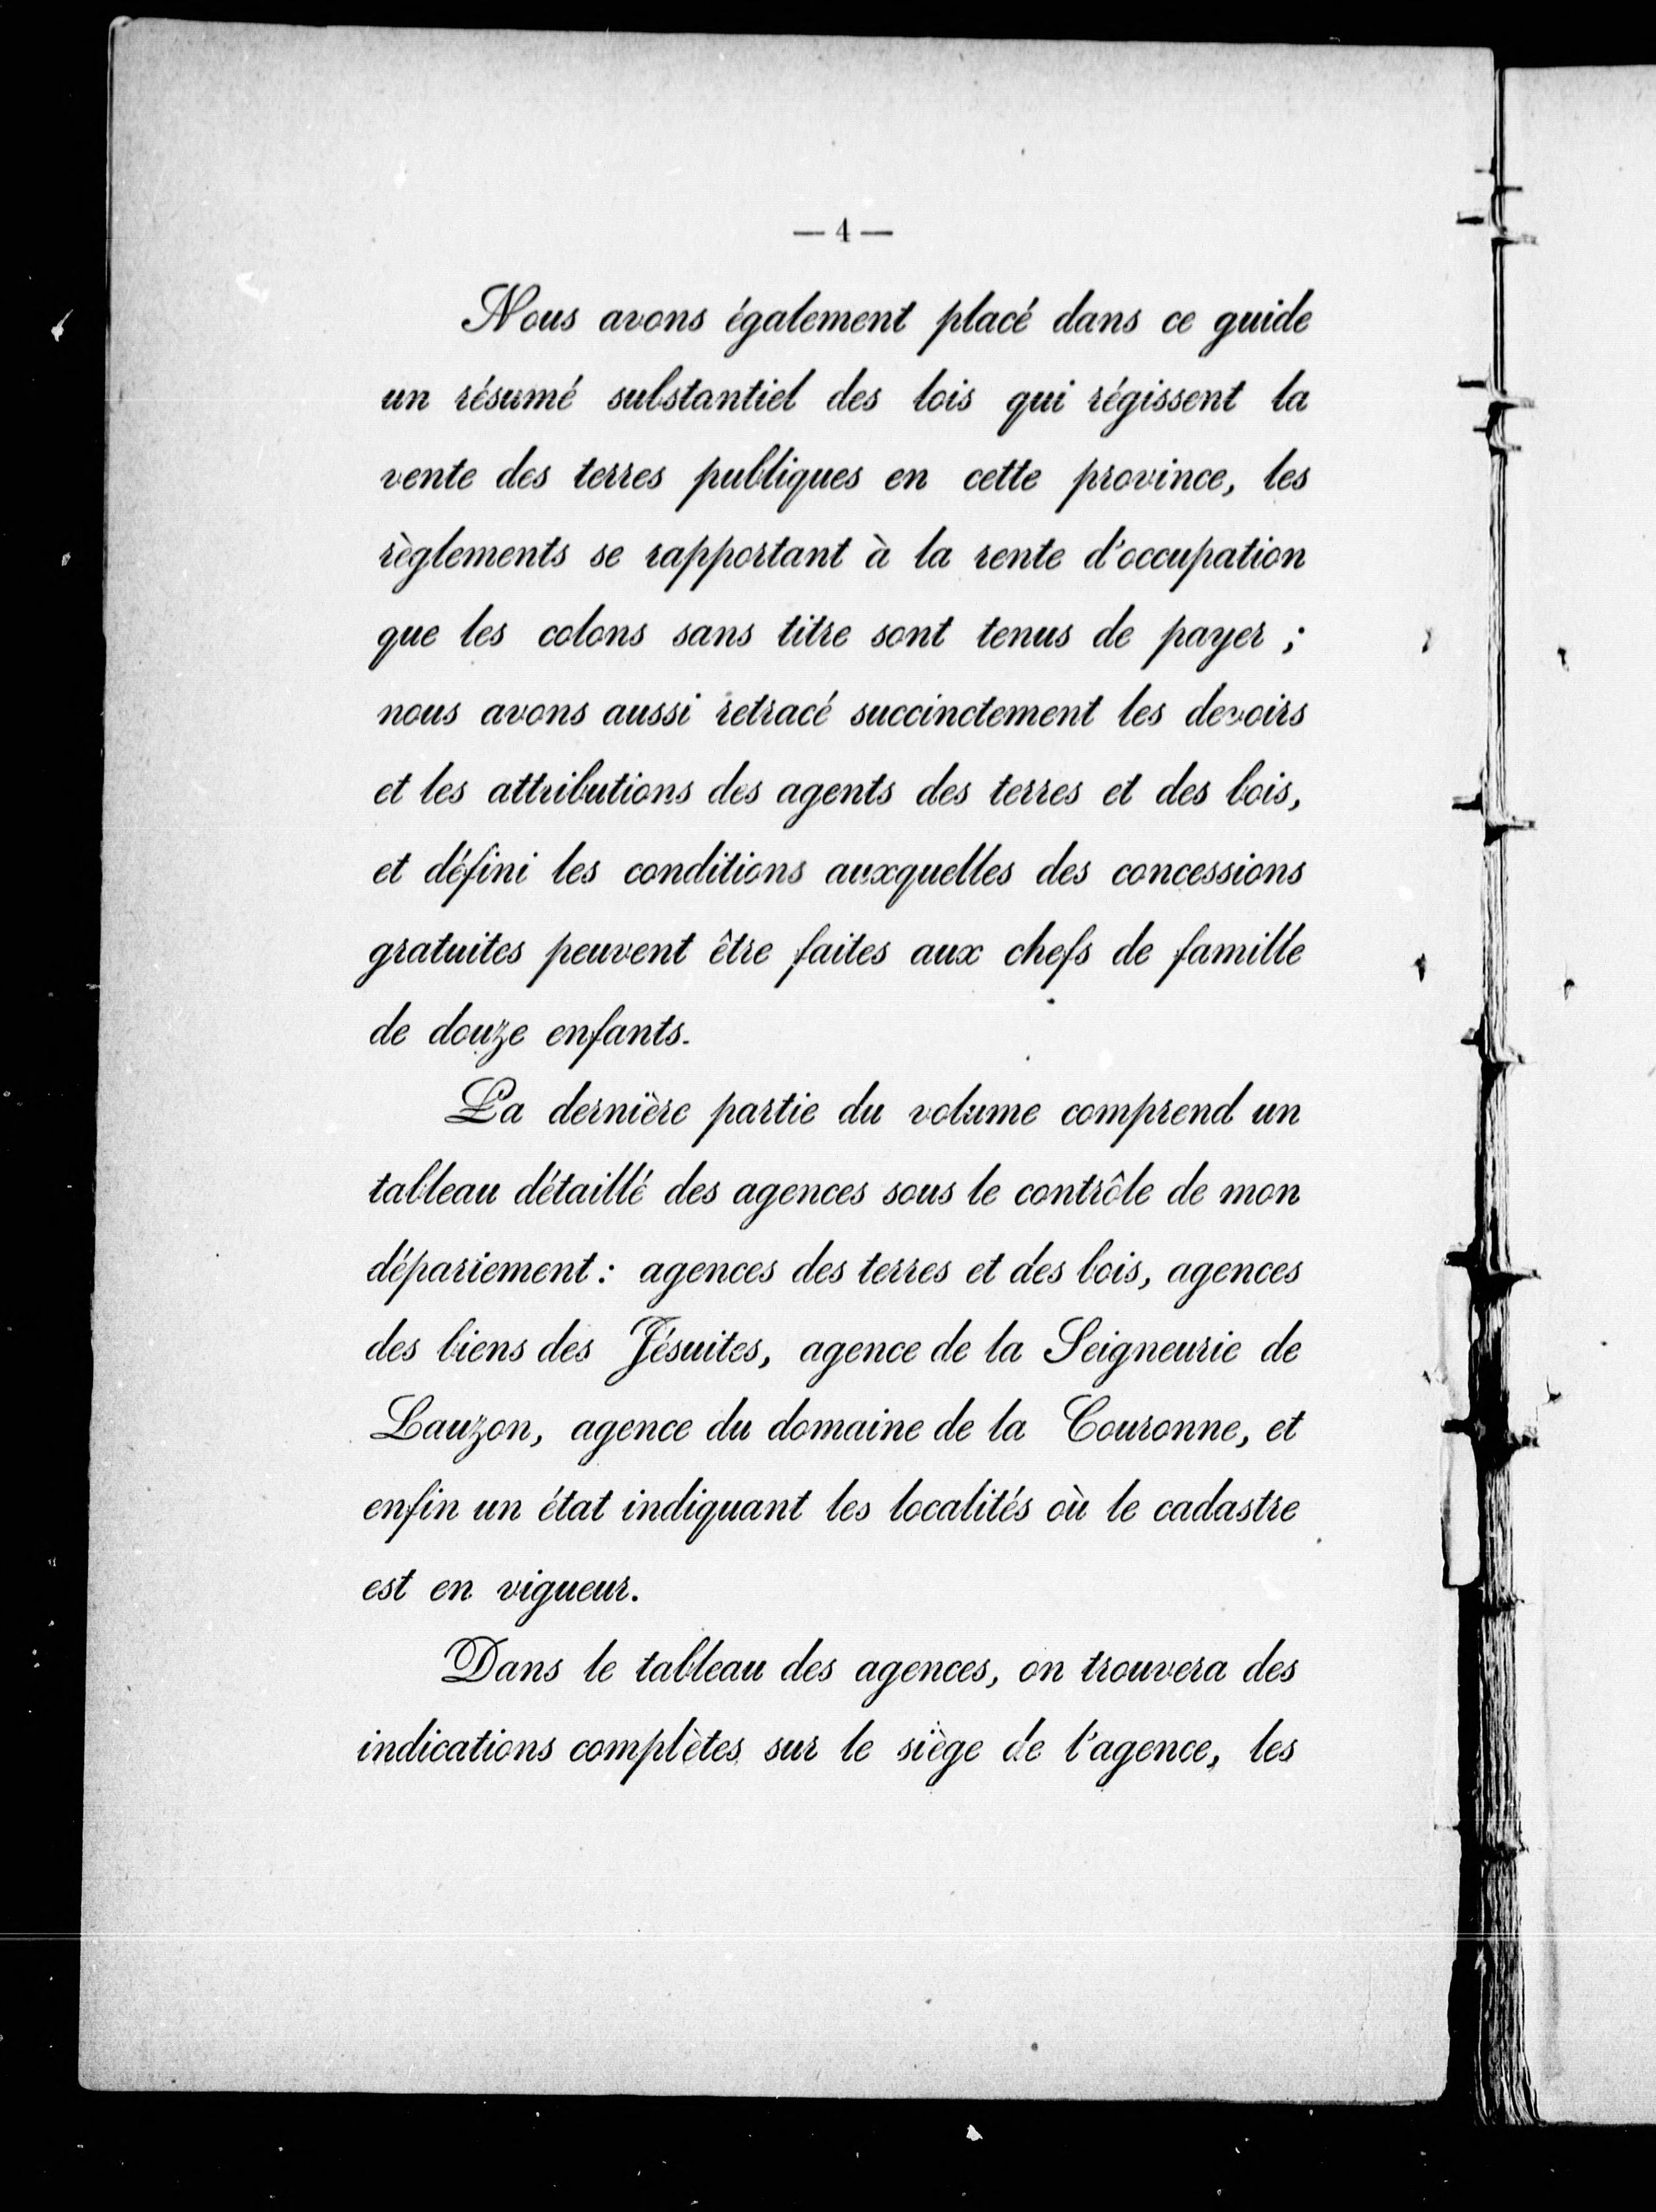 — 4 —
Nous avons également placé dans ce guide
un résumé substantiel des lois qui régissent la
vente des terres publiques en cette province, les
règlements se rapportant à la rente d'occupation
que les colons sans titre sont tenus de payer ;
nous avons aussi retracé succinctement les devoirs
et les attributions des agents des terres et des bois,
et défini les conditions auxquelles des concessions
gratuites peuvent être faites aux chefs de famille
de douze enfants.
La dernière partie du volume comprend un
tableau détaillé des agences sous le contrôle de mon
département : agences des terres et des bois, agences
des biens des Jésuites, agence de la Seigneurie de
Lauzon, agence du domaine de la Couronne, et
enfin un état indiquant les localités où le cadastre
est en vigueur.
Dans le tableau des agences, on trouvera des
indications complètes sur le siège de l'agence, les